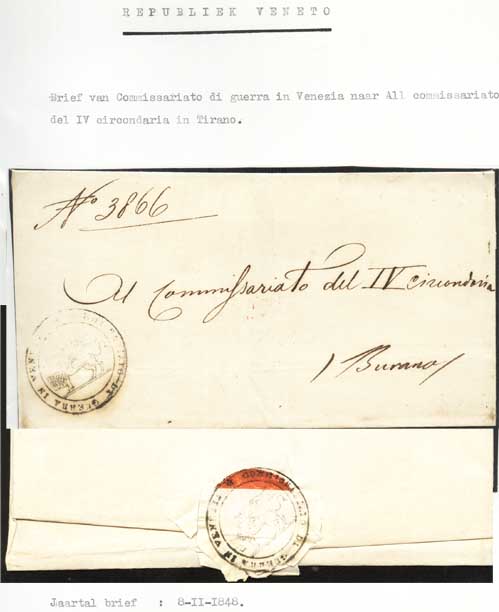 REPUBLIEK VENETO
Brief van Commissariato di guerra in Venezia naar All commissariato
del IV circondaria in Tirano.
No 3866
Al Commissariato del IV Circondario
Burano
GUERRA IN VEN
DI GUERRA IN VENEZIA
Jaartal brief : 8-II-1848.